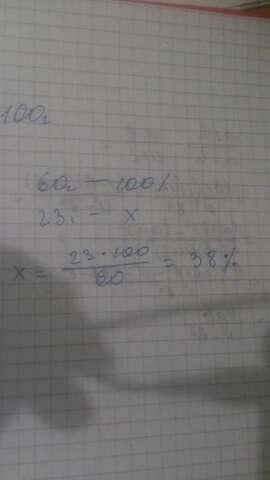 100г
60г — 100%
23г — x
x = 23·100/60 = 38%